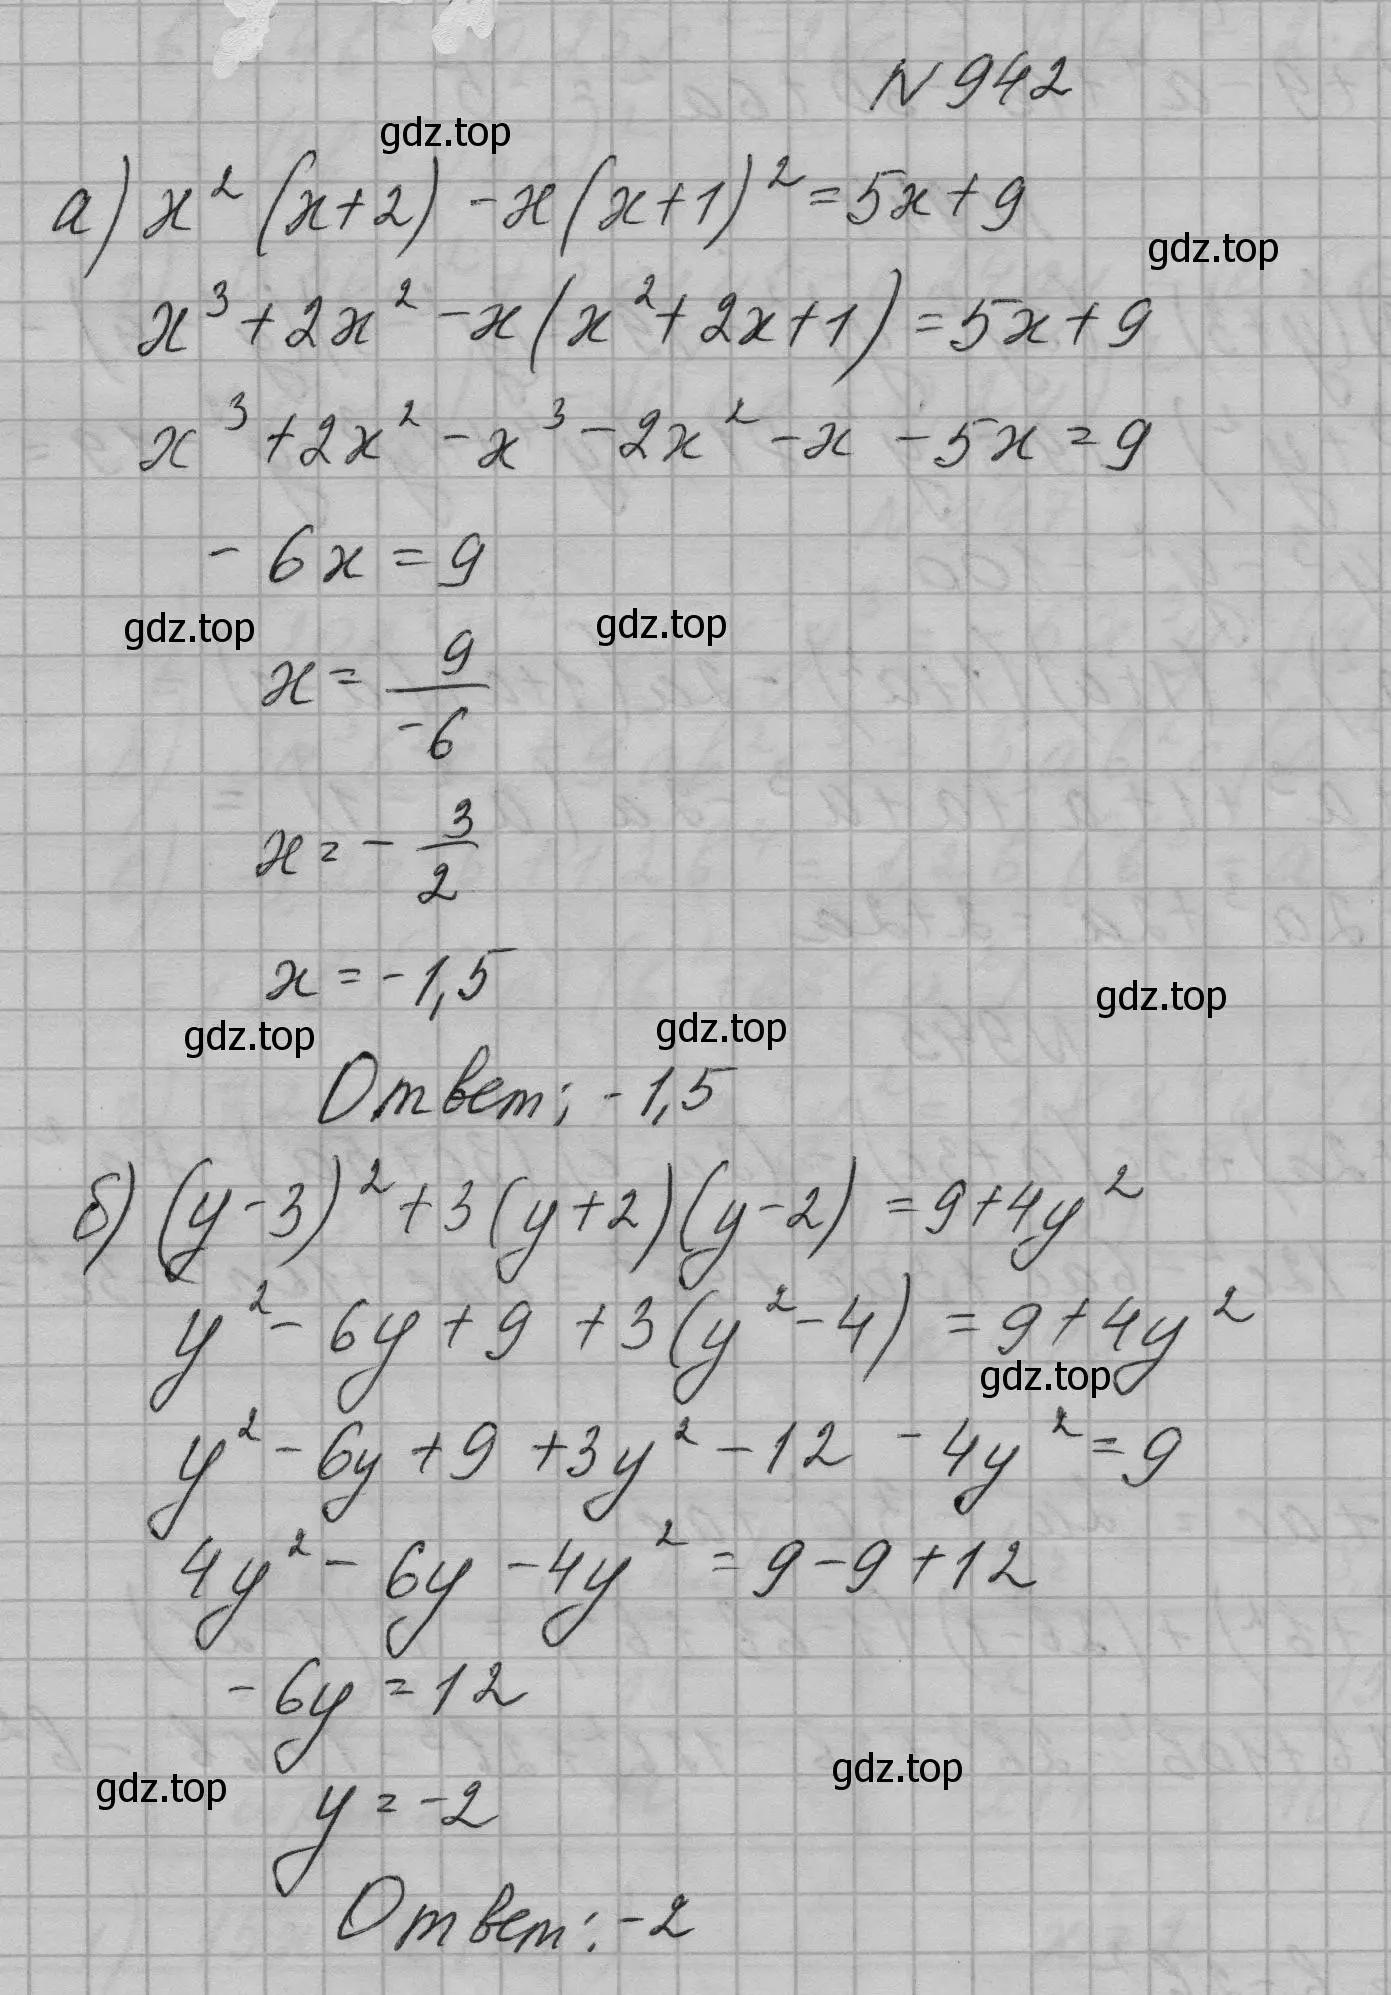 N 942
gdz.top
а) x² (x+2) - x(x+1)² = 5x+9
gdz.top
x³ + 2x² - x(x² + 2x + 1) = 5x + 9
x³ + 2x² - x³ - 2x² - x - 5x = 9
- 6x = 9
gdz.top gdz.top
x = 9/-6
x = - 3/2
x = -1,5
gdz.top
gdz.top gdz.top
Ответ: -1,5
б) (y-3)² + 3(y+2)(y-2) = 9+4y²
y² - 6y + 9 + 3(y² - 4) = 9 + 4y²
gdz.top
y² - 6y + 9 + 3y² - 12 - 4y² = 9
4y² - 6y - 4y² = 9 - 9 + 12
- 6y = 12
gdz.top gdz.top
y = -2
Ответ: -2